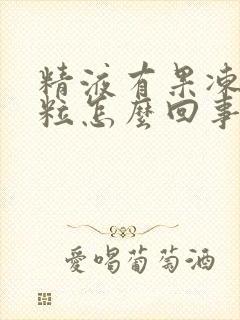 精液有果凍
粒怎麽回事
愛喝葡萄酒